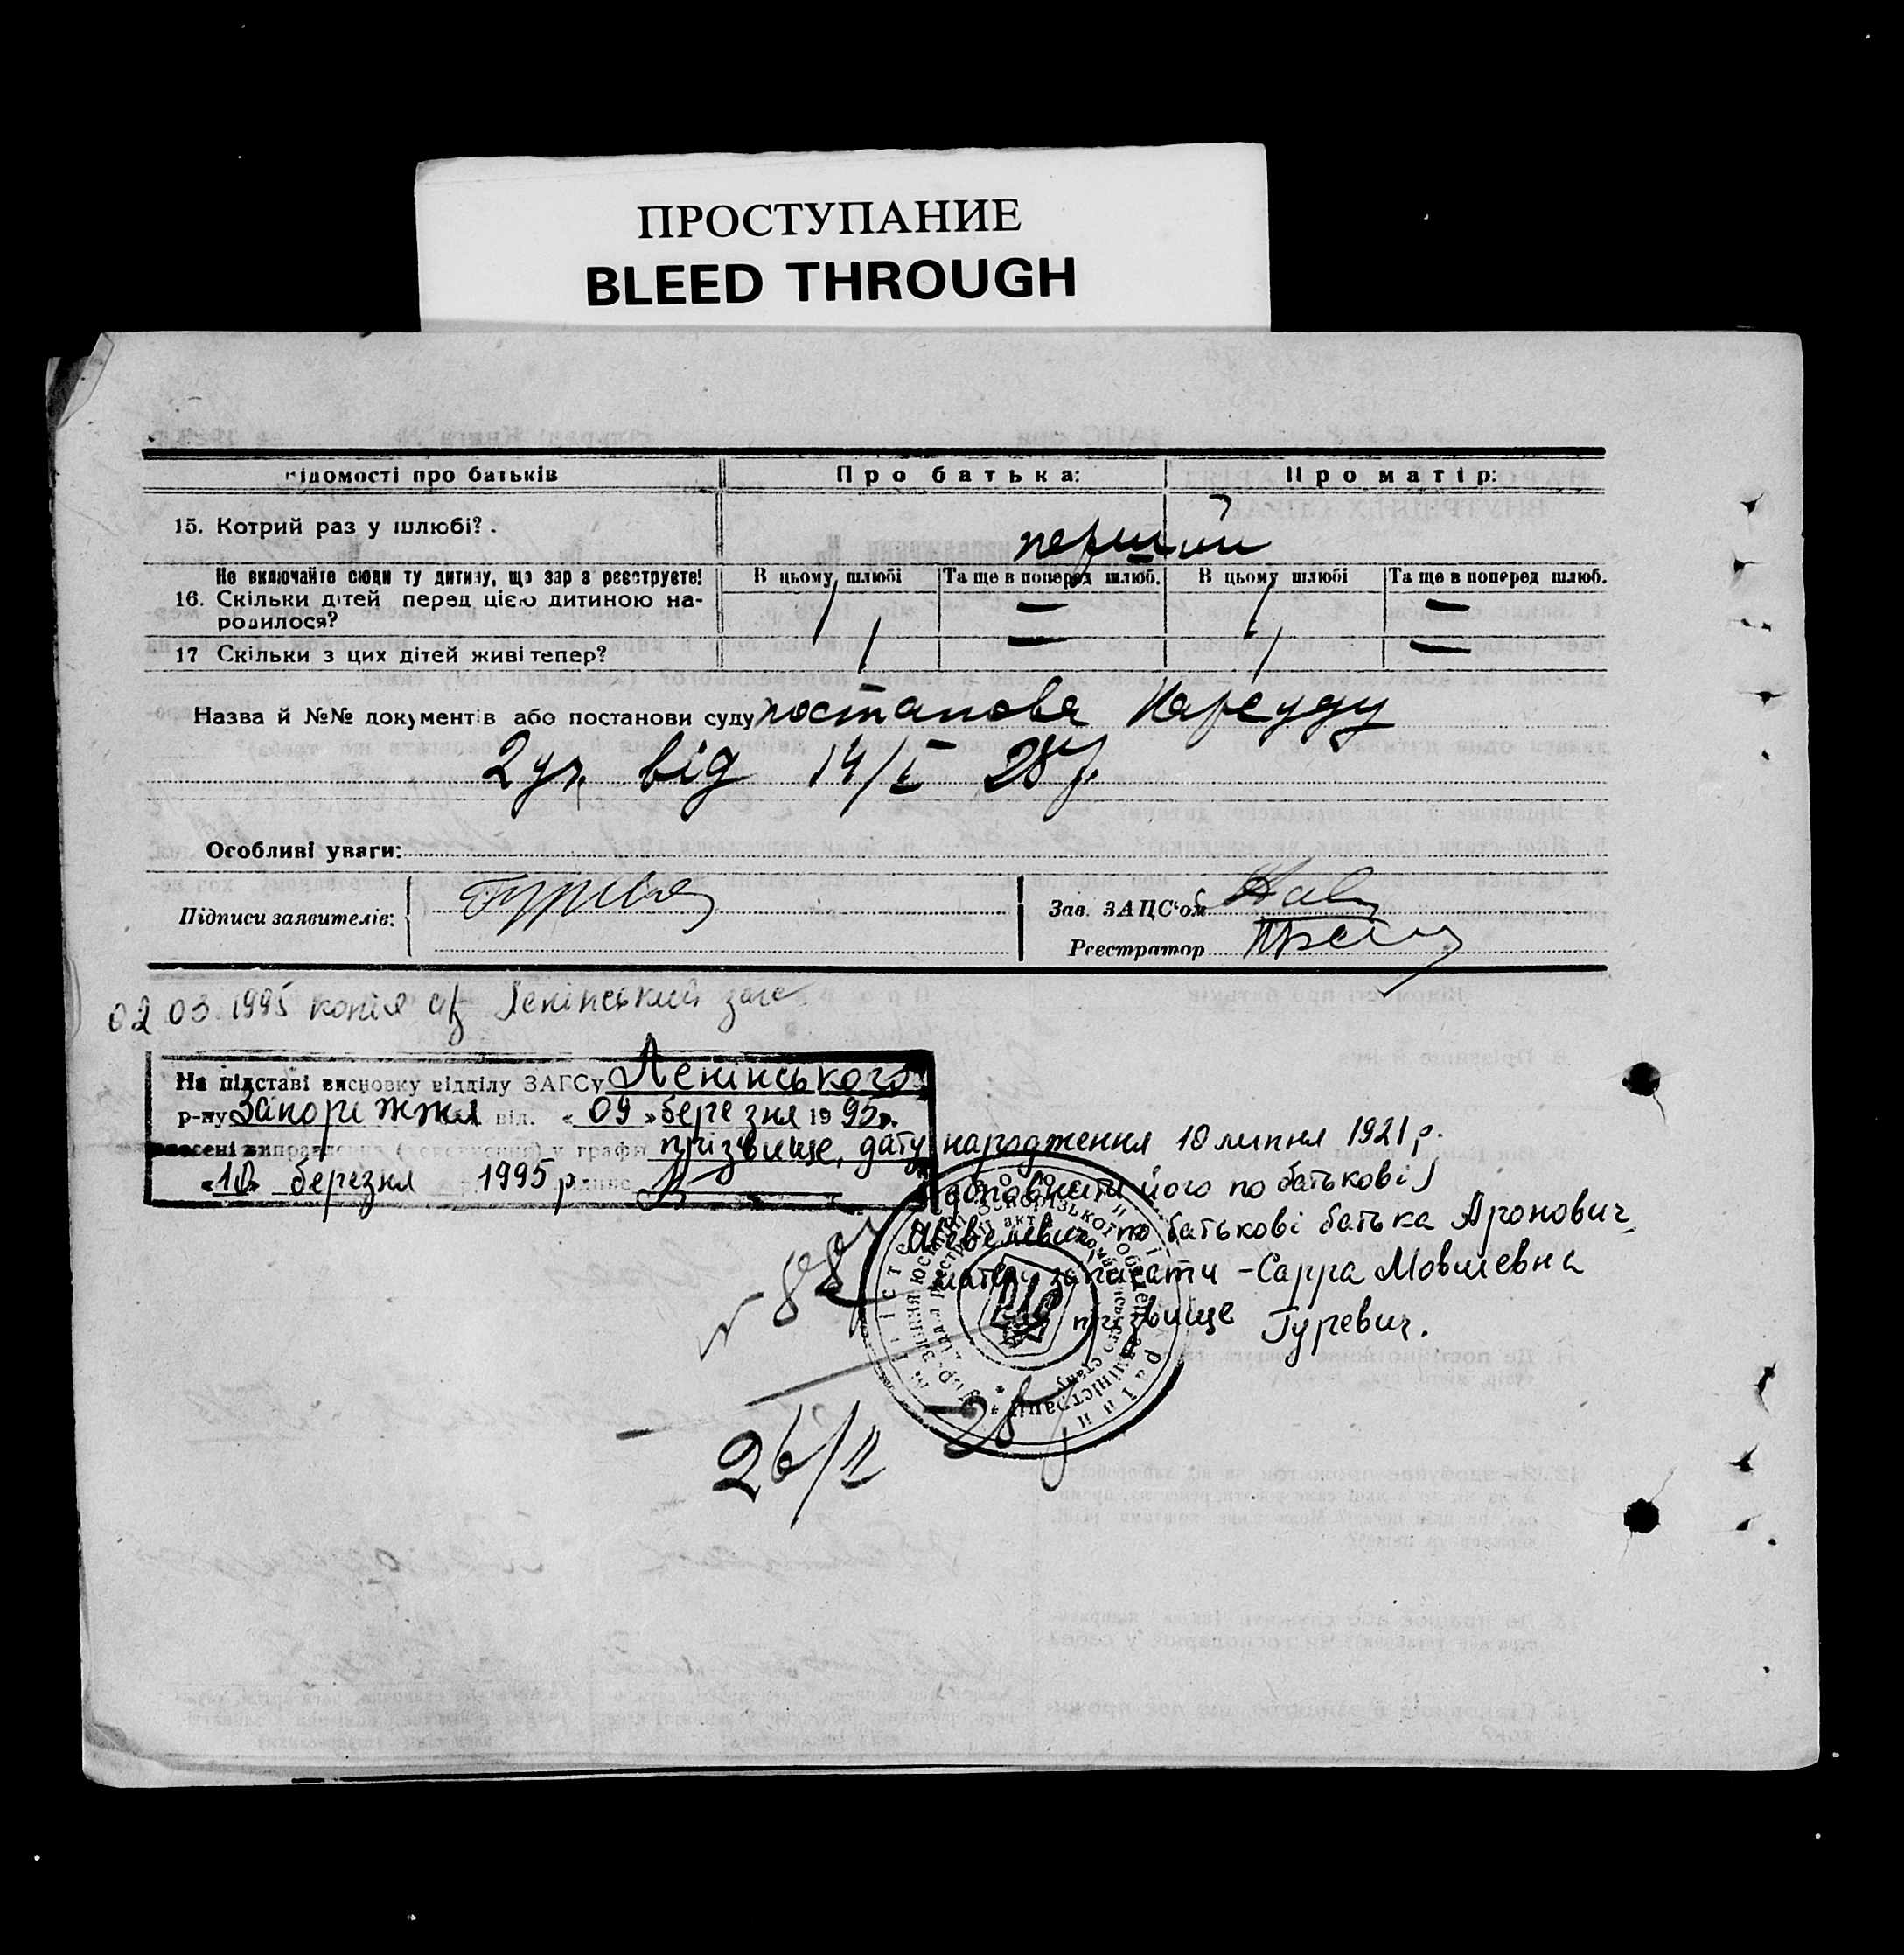 ПРОСТУПАНИЕ
BLEED THROUGH
ідомості про батьків Про батька: Про матір:
15. Котрий раз у шлюбі?. перший
Не включайте сюди ту дитину, що зар з реєструєте! В цьому шлюбі Та ще в поперед шлюб. В цьому шлюбі Та ще в поперед шлюб.
16. Скільки дітей перед цією дитиною на- 1 — 1 —
родилося?
17 Скільки з цих дітей живі тепер? 1 — 1 —
Назва й №№ документів або постанови суду постанова Нарсуду
2 уч. від 14/I 28 р.
Особливі уваги:
Підписи заявителів:
Зав. ЗАЦС'ом
Реєстратор
02 03.1995 копія Ленінський загс
На підставі висновку відділу ЗАГСу Ленінського
р-ну Запоріжжя від. «09» березня 1995р.
внесені виправлення (доповнення) у графи прізвище, дату народження 10 липня 1921 р.
«10» березня 1995 р.
доповнити його по батькові
Шевелевич, по батькові батька Аронович,
матір записати - Сарра Мовшевна
прізвище Гуревич.
26/II 28 р